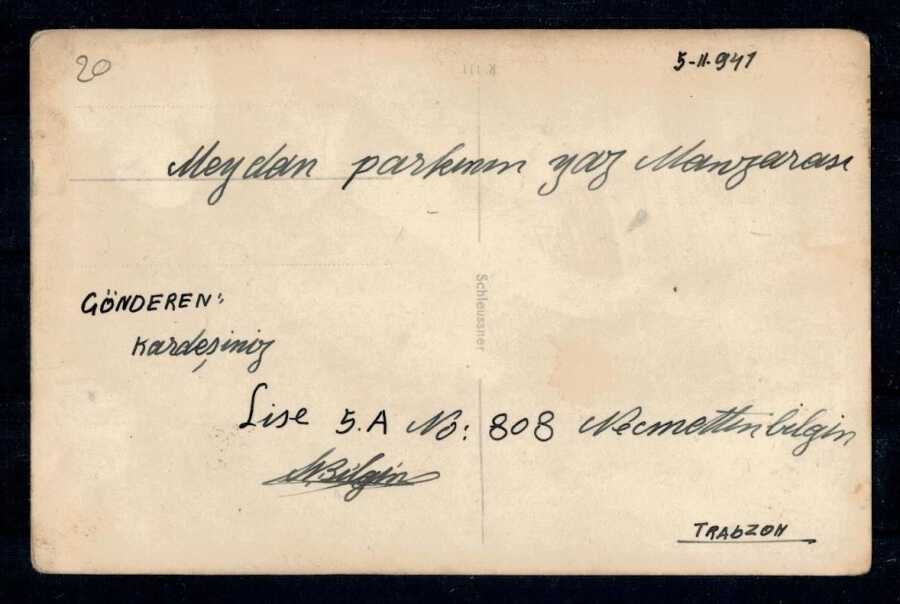 20
5-11-941
K 111
Meydan parkının yaz Manzarası
Schleussner
GÖNDEREN:
Kardeşiniz
Lise 5.A No: 808 Necmettin bilgin
NBilgin
TRAbZON